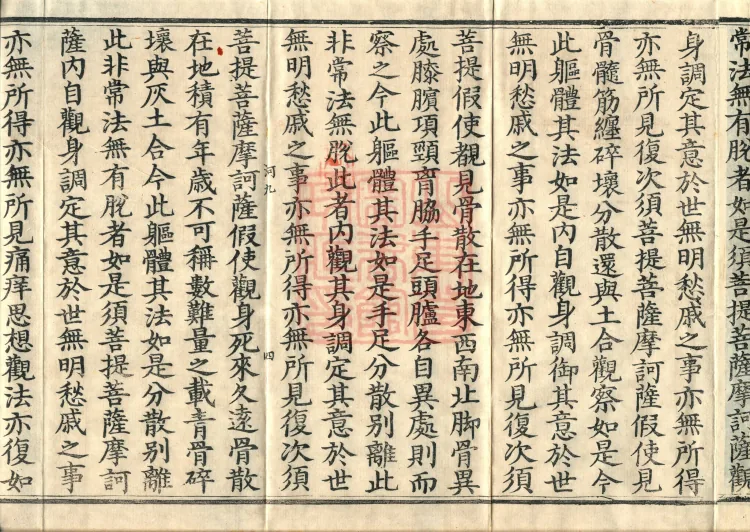 常法無有脫者如是須菩提菩薩摩訶薩觀
身調定其意於世無明愁戚之事亦無所得
亦無所見復次須菩提菩薩摩訶薩假使見
骨髓筋纏碎壞分散還與土合觀察如是今
此軀體其法如是內自觀身調御其意於世
無明愁戚之事亦無所得亦無所見復次須
菩提假使觀見骨散在地東西南北脚骨異
處膝臏項頸脅手足頭臚各自異處則而
察之今此軀體其法如是手足分散別離此
非常法無脫此者內觀其身調定其意於世
無明愁戚之事亦無所得亦無所見復次須
河九
四
菩提菩薩摩訶薩假使觀身死來久遠骨散
在地積有年歲不可稱數難量之載青骨碎
壞與灰土合今此軀體其法如是分散別離
此非常法無有脫者如是須菩提菩薩摩訶
薩內自觀身調定其意於世無明愁戚之事
亦無所得亦無所見痛痒思想觀法亦復如